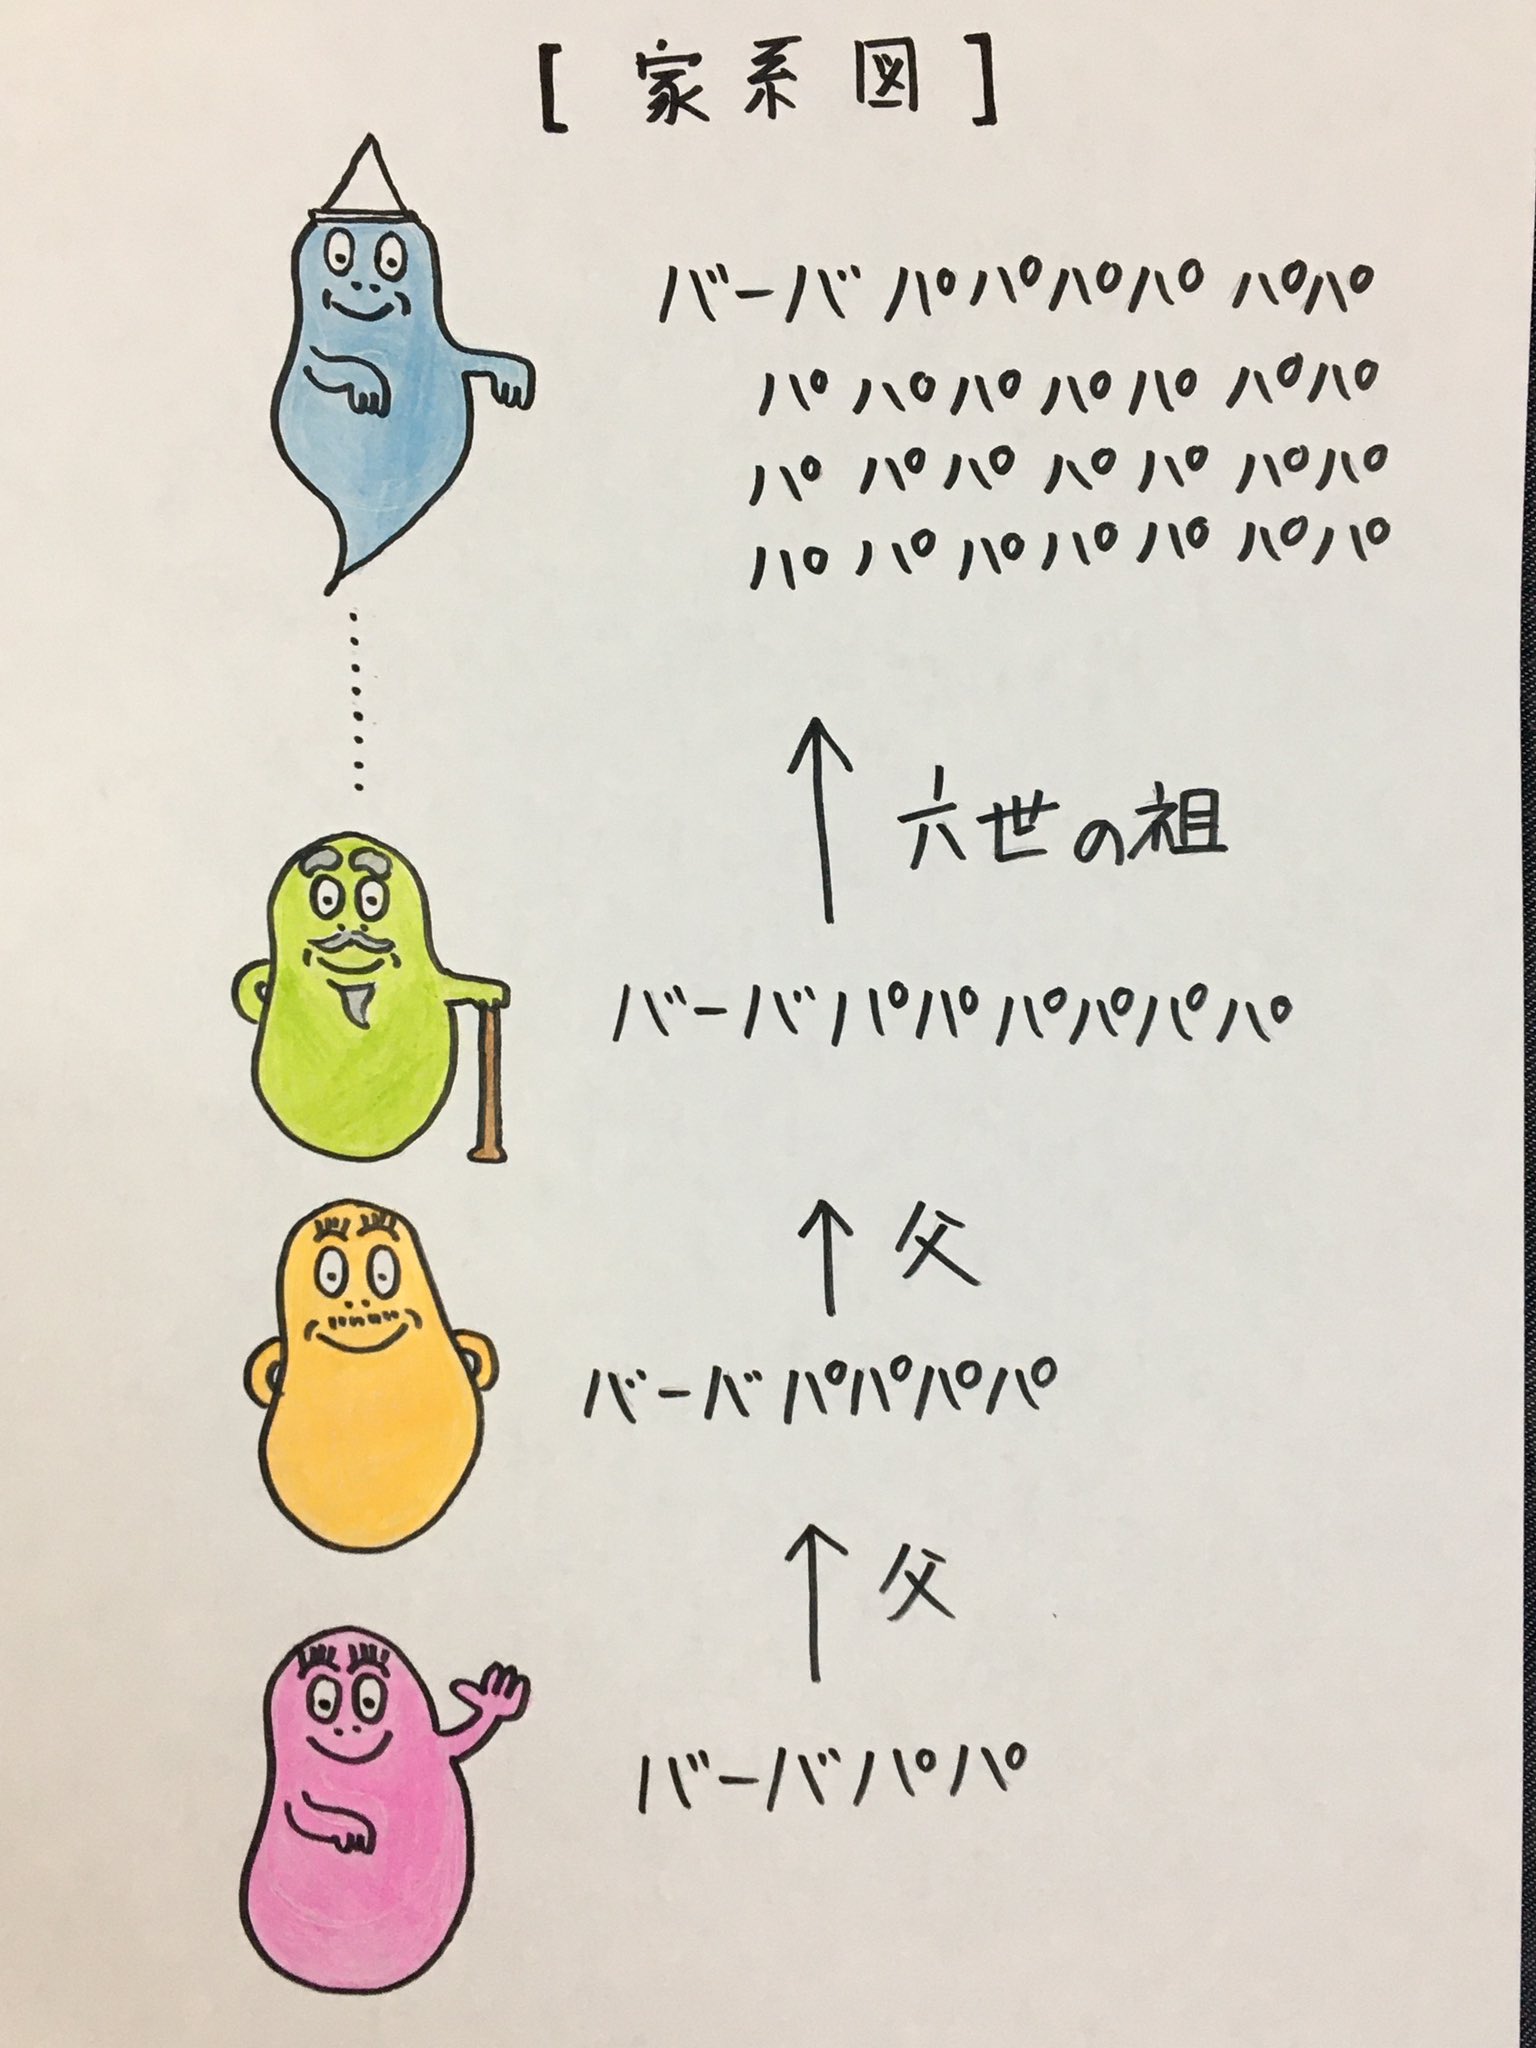 [家系図]
バーバパパパパパパ
パパパパパパパ
パパパパパパパ
パパパパパパパ
↑ 六世の祖
バーバパパパパパパ
↑ 父
バーバパパパパ
↑ 父
バーバパパ